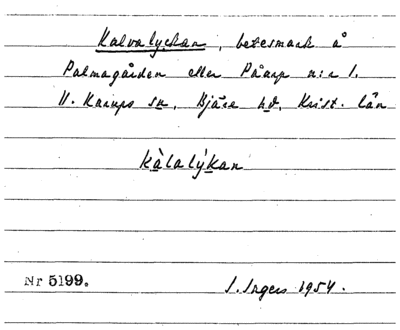 Kalvalyckan, betesmark å
Palmagården eller Påarp n:r 1.
V. Karups sn, Bjäre hd, Krist. län
kàlalýkan
Nr 5199.
I. Ingers 1954.